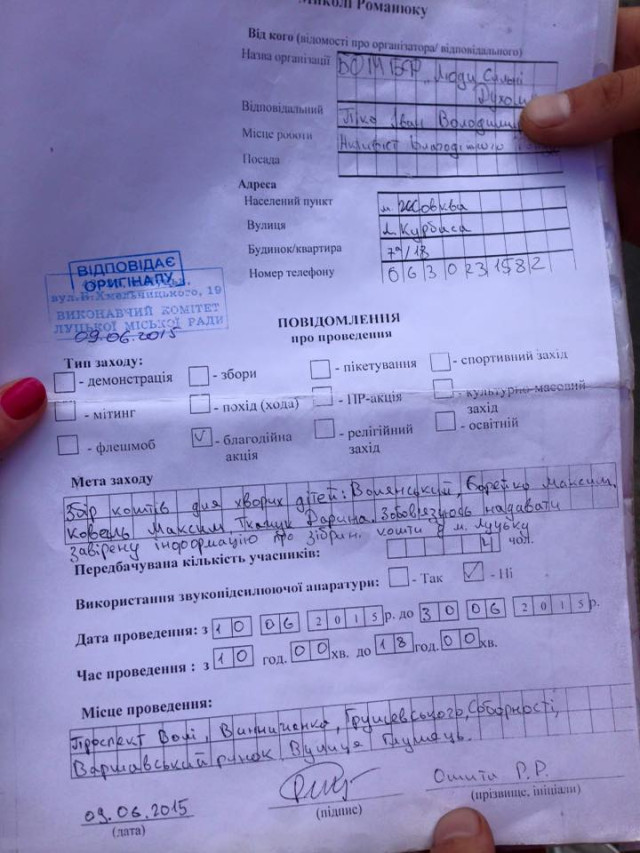 Миколі Романюку
Від кого (відомості про організатора/ відповідального)
Назва організації БО МБФ „Люди Сильні
Духом
Відповідальний Іван Володимир
Місце роботи Активіст Благодійного
Посада
Адреса
Населений пункт м. Жовква
Вулиця Л. Курбаса
Будинок/квартира 7а/18
Номер телефону 0630231582
ВІДПОВІДАЄ
ОРИГІНАЛУ
вул.Б.Хмельницького, 19
ВИКОНАВЧИЙ КОМІТЕТ
ЛУЦЬКОЇ МІСЬКОЇ РАДИ
09.06.2015
ПОВІДОМЛЕННЯ
про проведення
Тип заходу:
- демонстрація - збори - пікетування - спортивний захід
- мітинг - похід (хода) - ПР-акція - культурно-масовий
захід
- флешмоб - благодійна
акція - релігійний
захід - освітній
Мета заходу
Збір коштів для хворих дітей: Волянський, Борейко Максим,
Коваль Максим Ткачук Дарина. Зобов'язуюсь надавати
завірену інформацію про зібран. кошти в м. Луцьку
Передбачувана кількість учасників: 4 чол.
Використання звукопідсилюючої апаратури: - Так - Ні
Дата проведення: з 10 06 2015 р. до 30 06 2015 р.
Час проведення : з 10 год. 00 хв. до 18 год. 00 хв.
Місце проведення:
Проспект Волі, Винниченка, Грушевського, Соборності,
Варшавський ринок. Вулиця Глушець.
09.06.2015 Р.Р.
(дата) (підпис) (прізвище, ініціали)